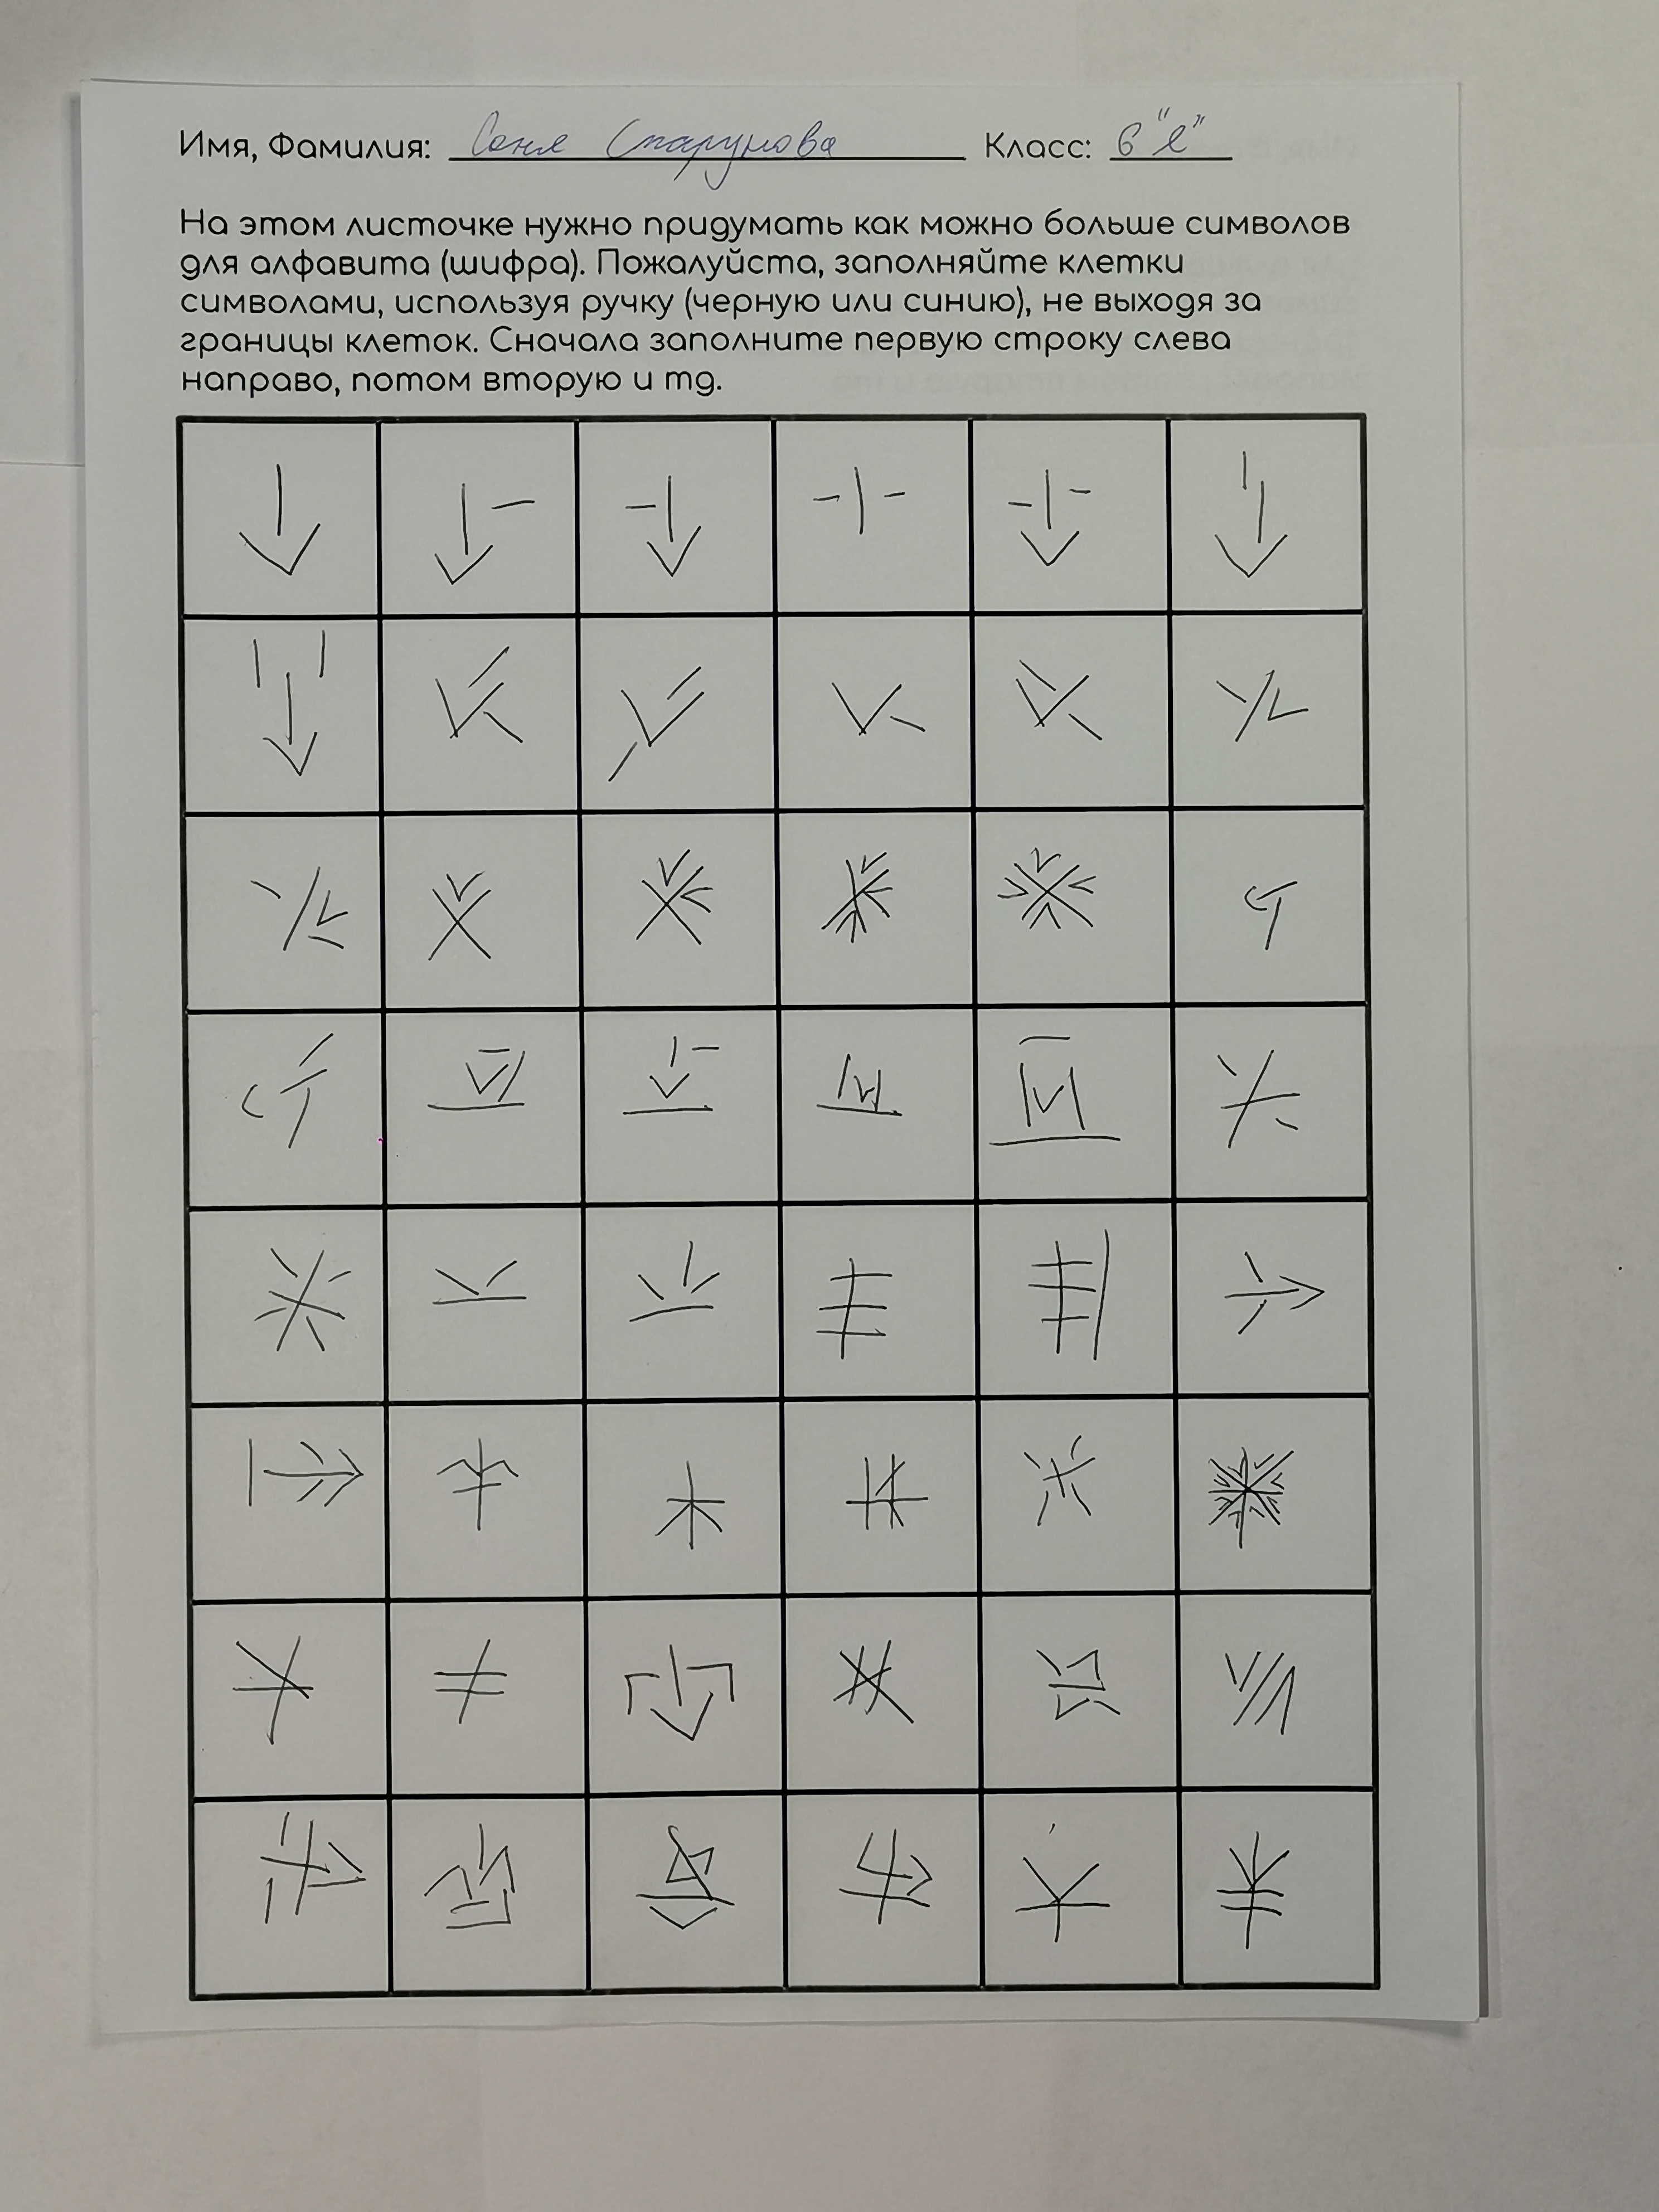 Имя, Фамилия: Соня Старунова Класс: 6 "е"
На этом листочке нужно придумать как можно больше символов
для алфавита (шифра). Пожалуйста, заполняйте клетки
символами, используя ручку (черную или синию), не выходя за
границы клеток. Сначала заполните первую строку слева
направо, потом вторую и тд.